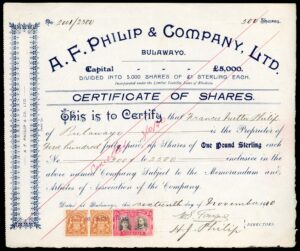 No. 2001/2500 200 SHARES.
A. F. PHILIP & COMPANY, LTD.
BULAWAYO.
Capital - - - £5,000.
DIVIDED INTO 5,000 SHARES OF £1 STERLING EACH.
Incorporated under the Limited Liability Laws of Rhodesia.
CERTIFICATE OF SHARES.
This is to Certify that Frances Nettie Philip
of Bulawayo is the Proprietor of
Five hundred fully paid up Shares of One Pound Sterling each
No. 2001 to 2500 inclusive in the
above named Company Subject to the Memorandum and
Articles of Association of the Company.
Dated in Bulawayo, the sixteenth of November 1940
DIRECTORS.
H J Philip
A. F. PHILIP & CO. LTD.